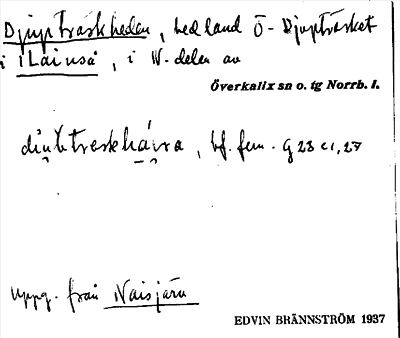 Djupträskheden, hedland Ö- Djupträsket
i Lainuså, i N-delen av
Överkalix sn o. tg Norrb. l.
bf. fem. G 23 c 1, 27
uppg. från Naisjärv
EDVIN BRÄNNSTRÖM 1937